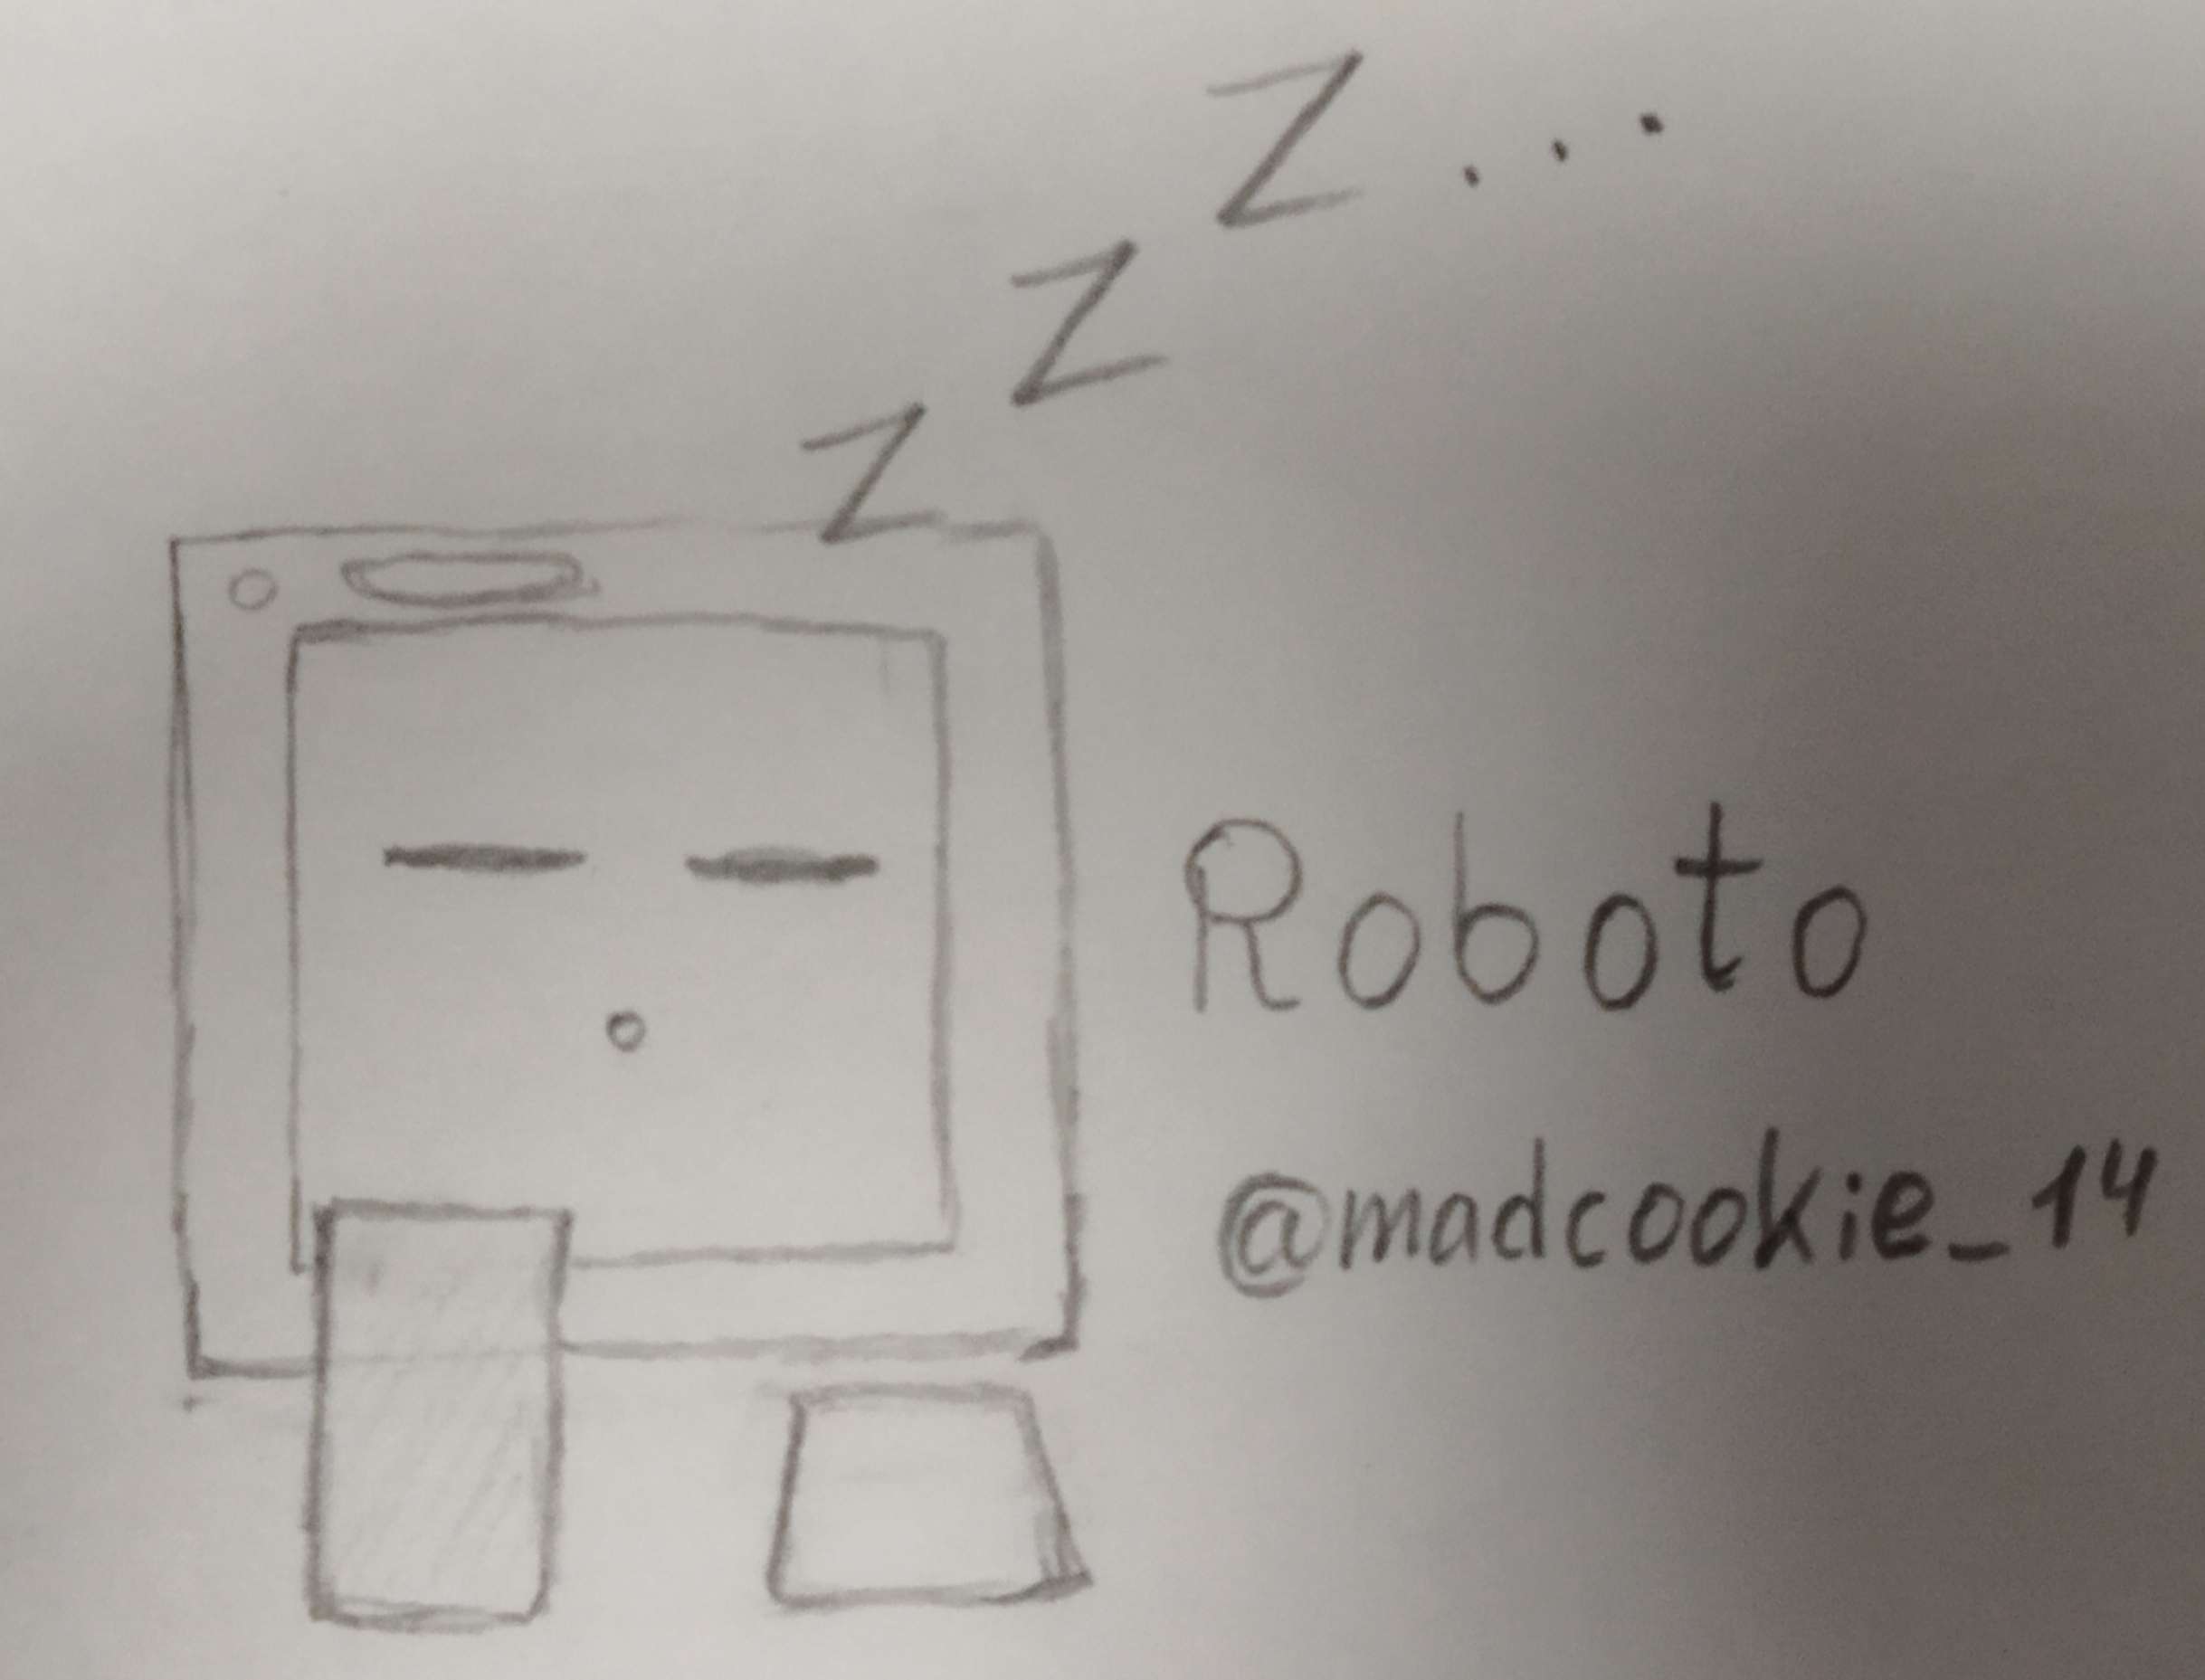 Z Z Z...
Roboto
@madcookie_14